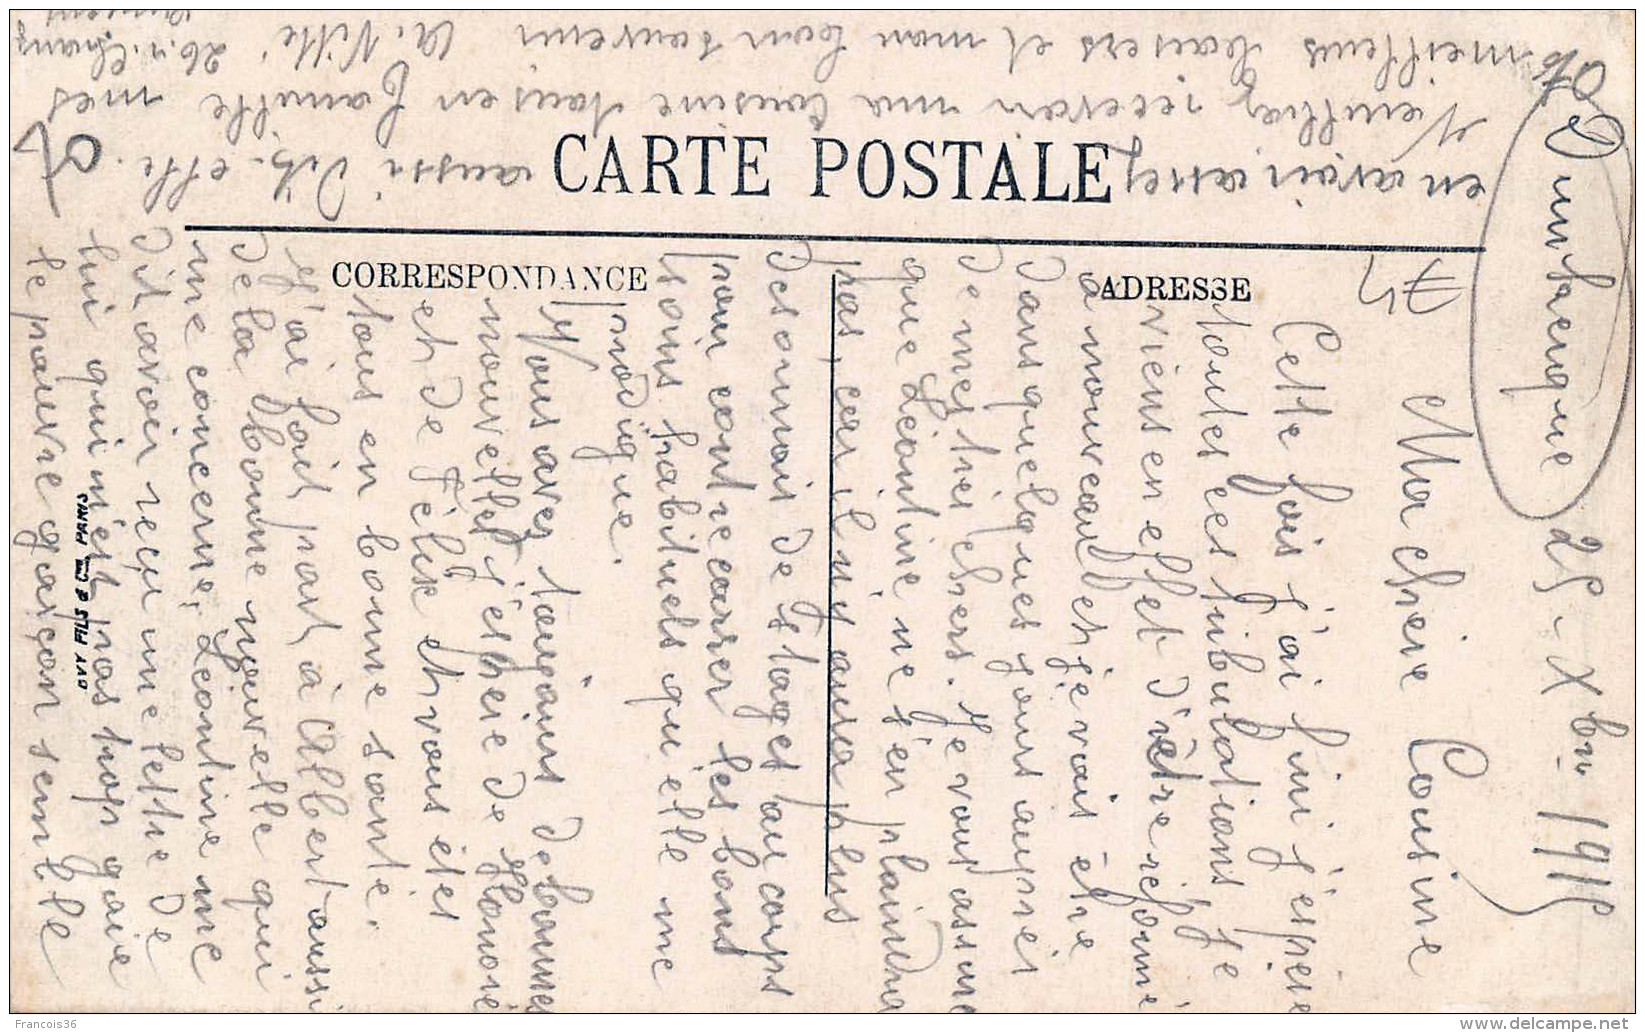 Dunkerque 25 - Xbre 1915
Ma chère Cousine
Cette fois j'ai fini j'espère
toutes ces tribulations je
viens en effet d'être réformé
à nouveau et je vais être
dans quelques jours auprès
de mes très chers. Je vous assure
que Léontine ne s'en plaindra
pas, car il n'y aura plus
désormais de stages au corps
pour contrecarrer les bons
soins habituels qu'elle me
prodigue.
Vous avez toujours de bonnes
nouvelles j'espère de Honoré
et de Félix et vous êtes
tous en bonne santé.
J'ai fait part à Albert aussi
de la bonne nouvelle qui
me concerne, Léontine me
dit avoir reçu une lettre de
lui qui n'est pas trop gaie
le pauvre garçon semble
en avoir assez aussi dit-elle.
Veuillez recevoir ma cousine tous en famille mes
meilleurs baisers et mon bon souvenir
CARTE POSTALE
CORRESPONDANCE
ADRESSE
LVV FILS & CIE NANCY
Francois36
delcampe.net